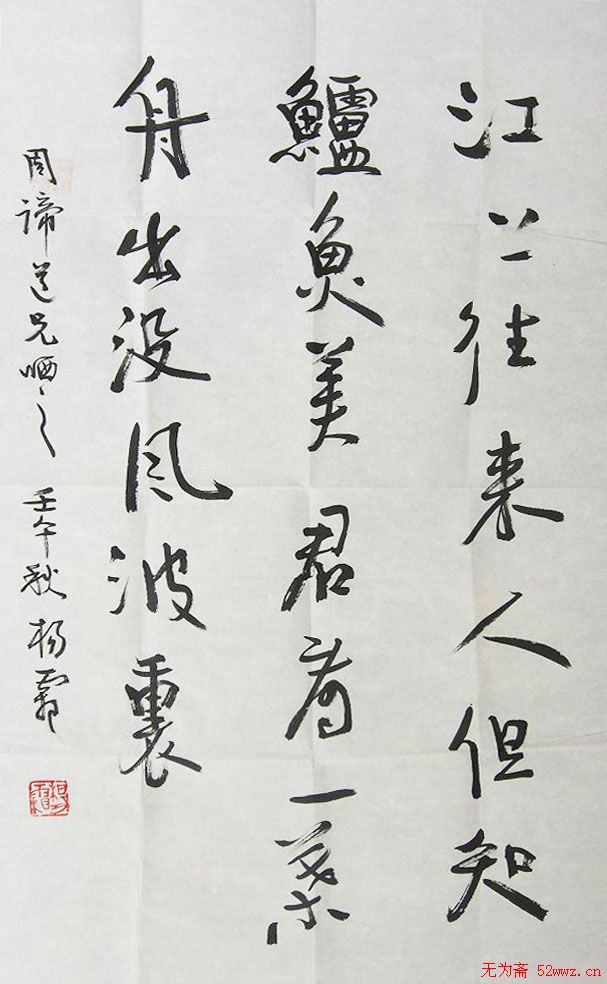 江上往来人但知
鱸魚美君看一葉
舟出没风波裏
周諦道兄哂之 壬午秋 杨霜
无为斋 52wwz.cn